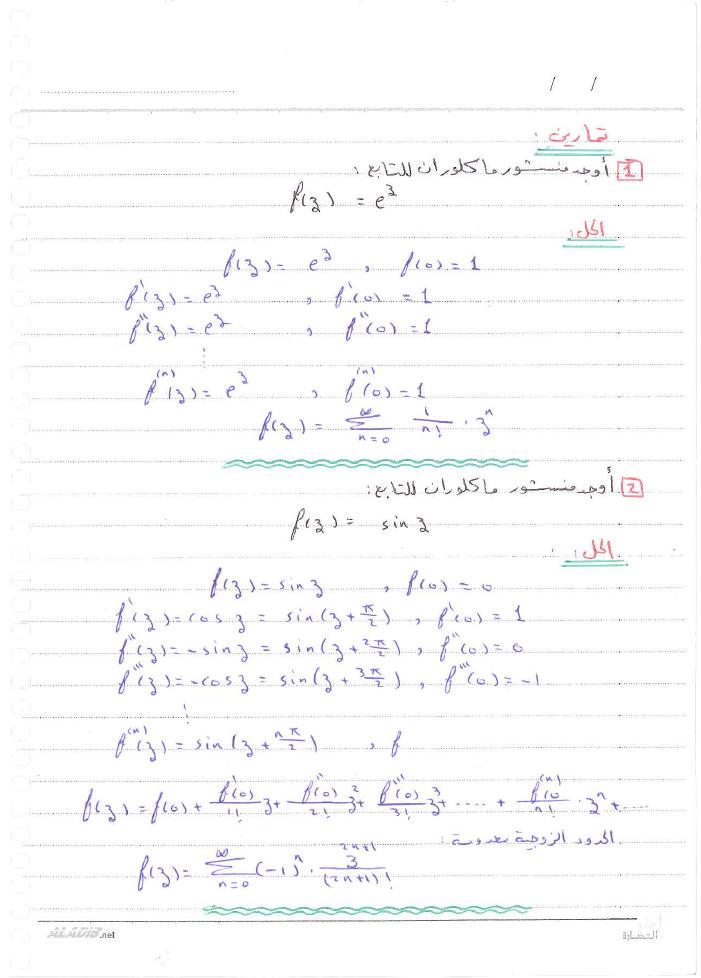 / /
تمارين :
1 أوجد منشور ماكلوران للتابع :
f(z) = e^z
الحل :
f(z) = e^z , f(0) = 1
f'(z) = e^z , f'(0) = 1
f''(z) = e^z , f''(0) = 1
⋮
f^(n)(z) = e^z , f^(n)(0) = 1
f(z) = ∑_{n=0}^{∞} 1/n! · z^n
2 أوجد منشور ماكلوران للتابع :
f(z) = sin z
الحل :
f(z) = sin z , f(0) = 0
f'(z) = cos z = sin(z + π/2) , f'(0) = 1
f''(z) = -sin z = sin(z + 2π/2) , f''(0) = 0
f'''(z) = -cos z = sin(z + 3π/2) , f'''(0) = -1
⋮
f^(n)(z) = sin(z + nπ/2) , f
f(z) = f(0) + f'(0)/1! z + f''(0)/2! z^2 + f'''(0)/3! z^3 + ..... + f^(n)(0)/n! · z^n + ....
الحدود الزوجية معدومة :
f(z) = ∑_{n=0}^{∞} (-1)^n · z^{2n+1}/(2n+1)!
ALADIB.net